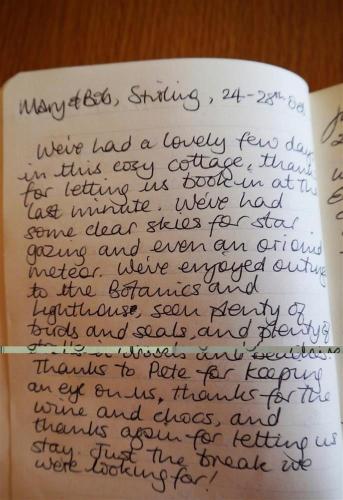 Mary & Bob, Stirling, 24-28th Oct
We've had a lovely few days
in this cosy cottage, thanks
for letting us book in at the
last minute. We've had
some clear skies for star
gazing and even an orionid
meteor. We've enjoyed outings
to the Botanics and
Lighthouse, seen plenty of
birds and seals, and plenty of
and
Thanks to Pete for keeping
an eye on us, thanks for the
wine and chocs, and
thanks again for letting us
stay. Just the break we
were looking for!